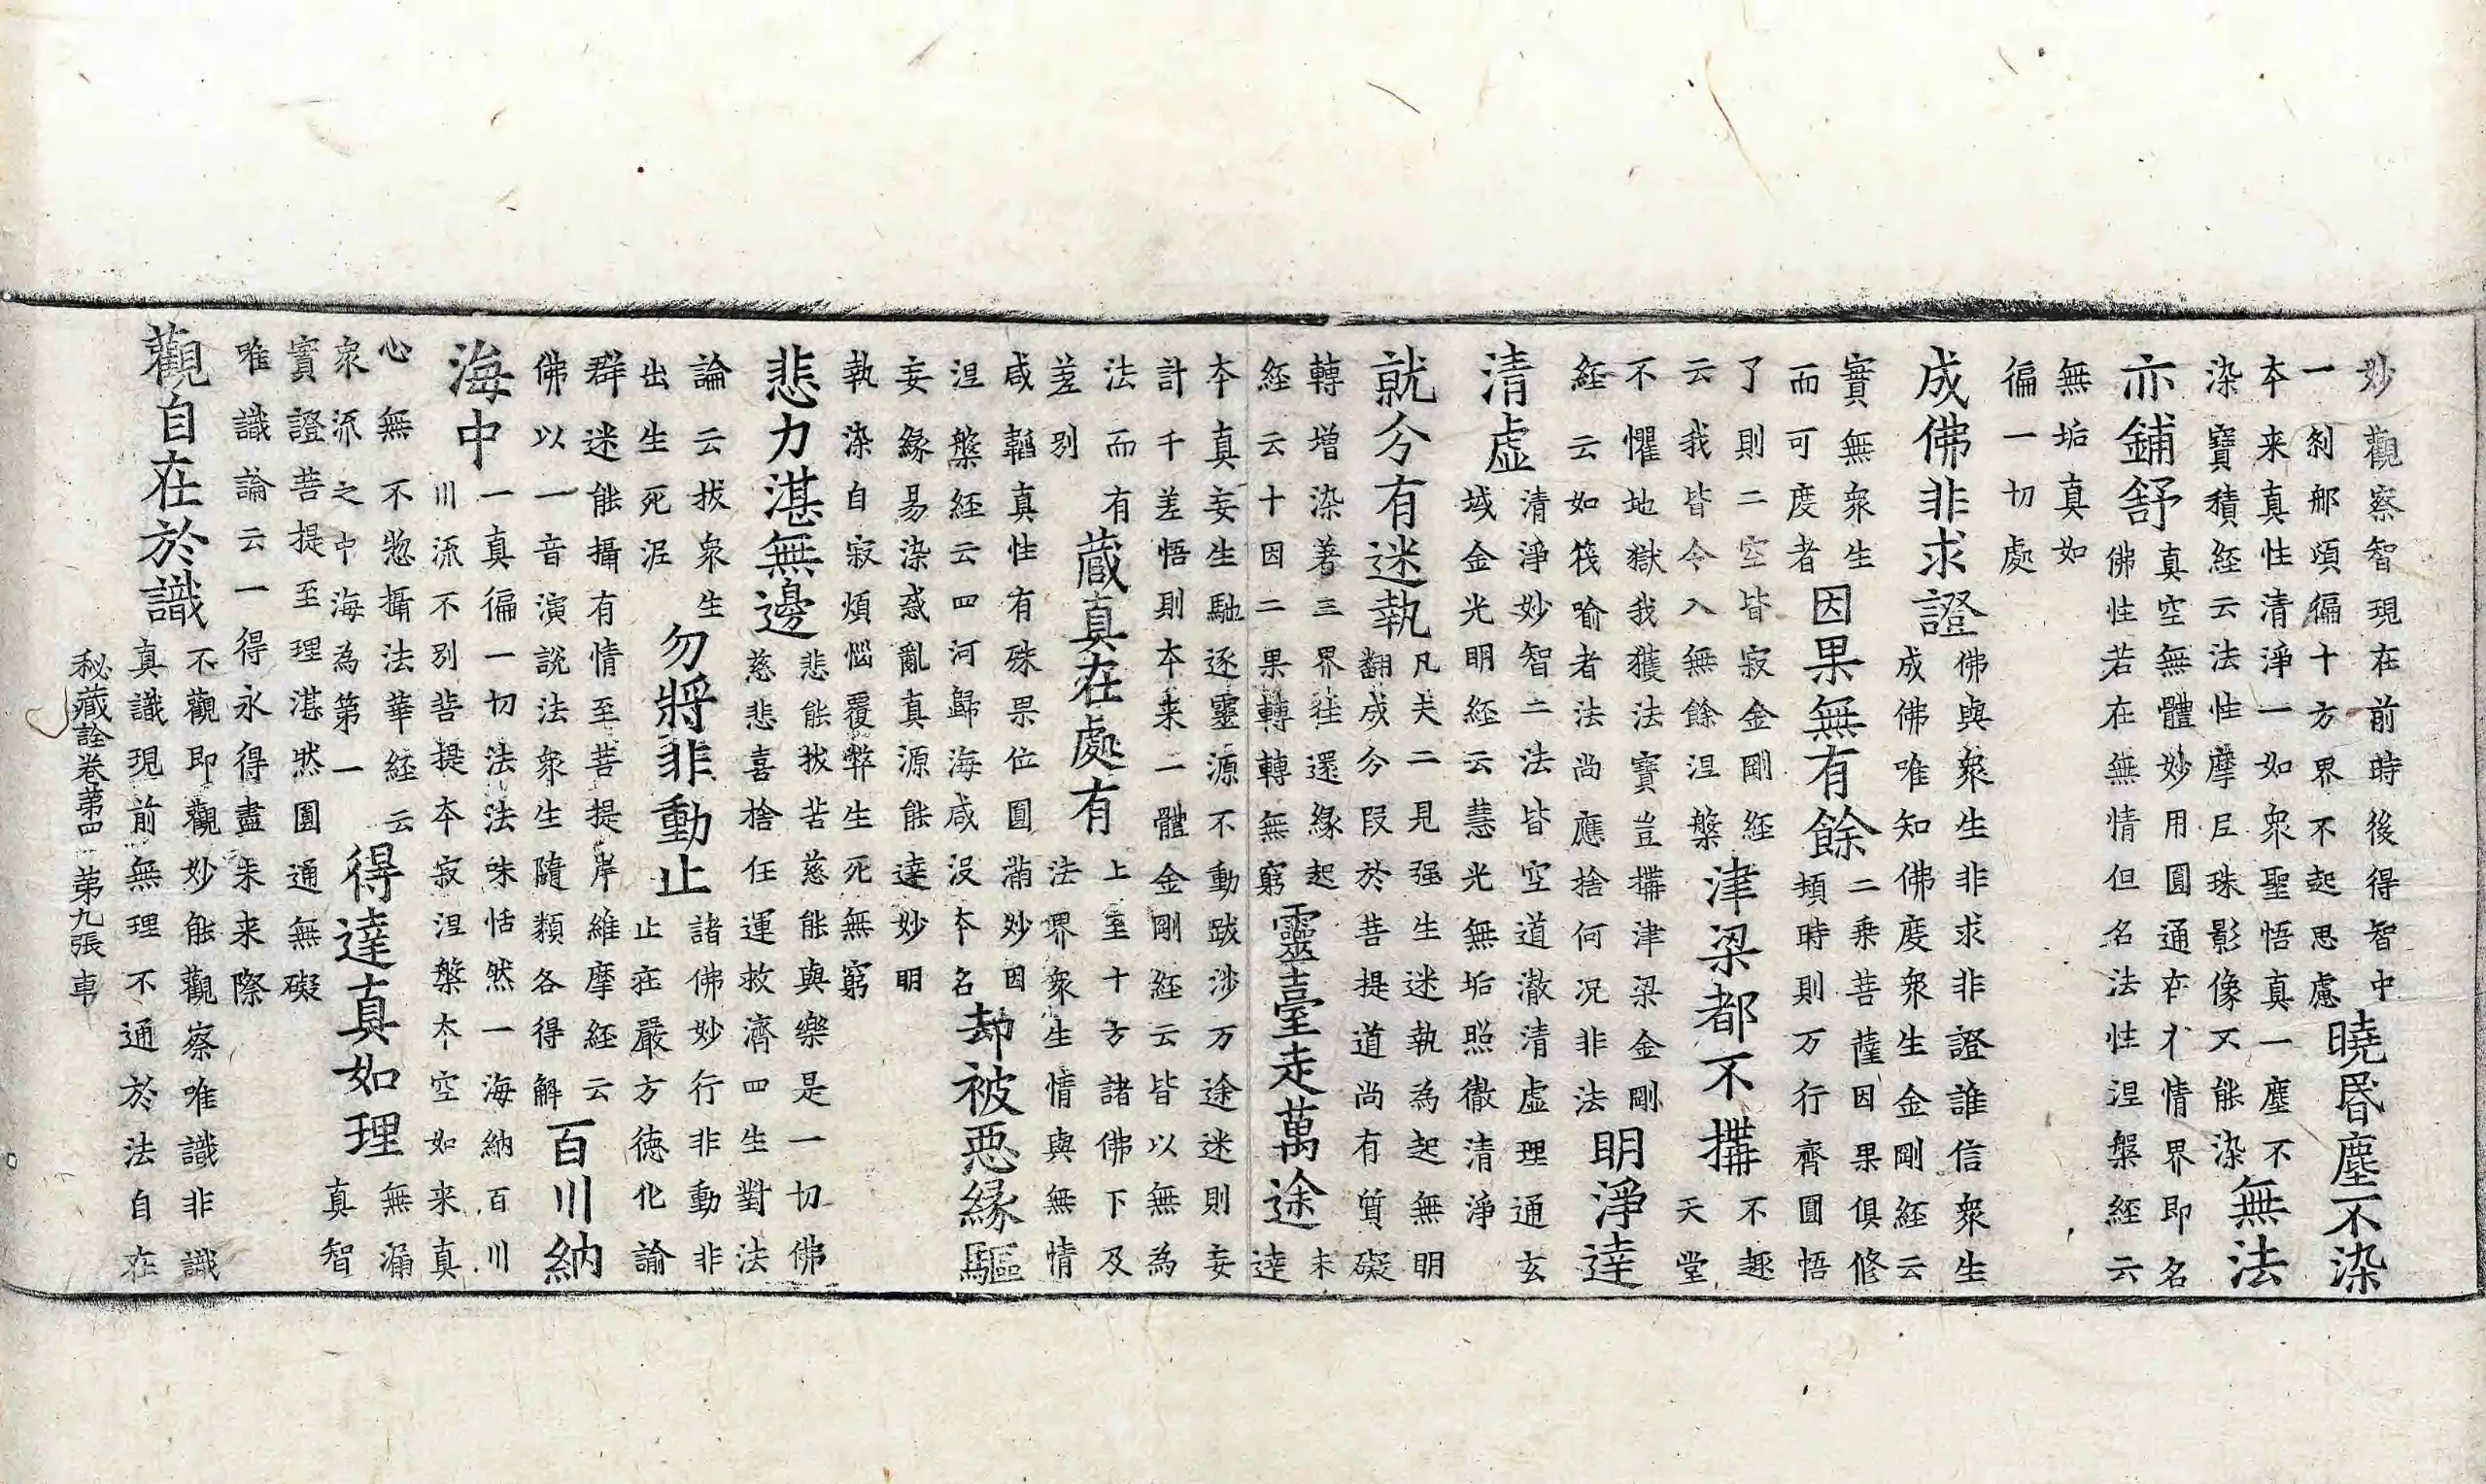 妙觀察智現在前時後得智中
一刹那頃徧十方界不起思慮
曉昏塵不染
本来真性清淨一如衆聖悟真一塵不
染寶積経云法性摩尼珠影像不能染
無法
亦鋪舒
真空無體妙用圓通在有情界即名
佛性若在無情但名法性涅槃経云
無垢真如
徧一切處
成佛非求證
佛與衆生非求非證誰信衆生
成佛唯知佛度衆生金剛経云
實無衆生
而可度者
因果無有餘
二乗菩薩因果俱修
頓時則万行齊圓悟
了則二空皆寂金剛経
云我皆令入無餘涅槃
津梁都不搆
不趣
天堂
不懼地獄我獲法寶豈搆津梁金剛
経云如筏喻者法尚應捨何况非法
明淨達
清虛
清淨妙智二法皆空道澈清虛理通玄
域金光明経云慧光無垢照徹清淨
就分有迷執
凡夫二見强生迷執為起無明
翻成分段於菩提道尚有質礙
轉增染著三界往還緣起
経云十因二果轉轉無窮
靈臺走萬途
未
達
本真妄生馳逐靈源不動跋涉万途迷則妄
計千差悟則本来二體金剛経云皆以無為
法而有
差別
藏真在處有
上至十方諸佛下及
法界衆生情與無情
咸韜真性有殊果位圓滿妙因
涅槃経云四河歸海咸没本名
却被惡緣驅
妄緣易染惑亂真源能達妙明
執染自寂煩惱覆弊生死無窮
悲力湛無邊
悲能拔苦慈能與樂是一切佛
慈悲喜捨任運救濟四生對法
論云拔衆生
出生死泥
勿將非動止
諸佛妙行非動非
止在嚴方德化諭
群迷能攝有情至菩提岸維摩経云
佛以一音演說法衆生隨類各得解
百川納
海中
一真徧一切法法味恬然一海納百川
川流不別菩提本寂涅槃本空如来真
心無不惣攝法華経云
衆流之中海為第一
得達真如理
無漏
真智
實證菩提至理湛然圓通無礙
唯識論云一得永得盡未来際
觀自在於識
不觀即觀妙能觀察唯識非識
真識現前無理不通於法自在
秘藏詮卷第四 第九張 車